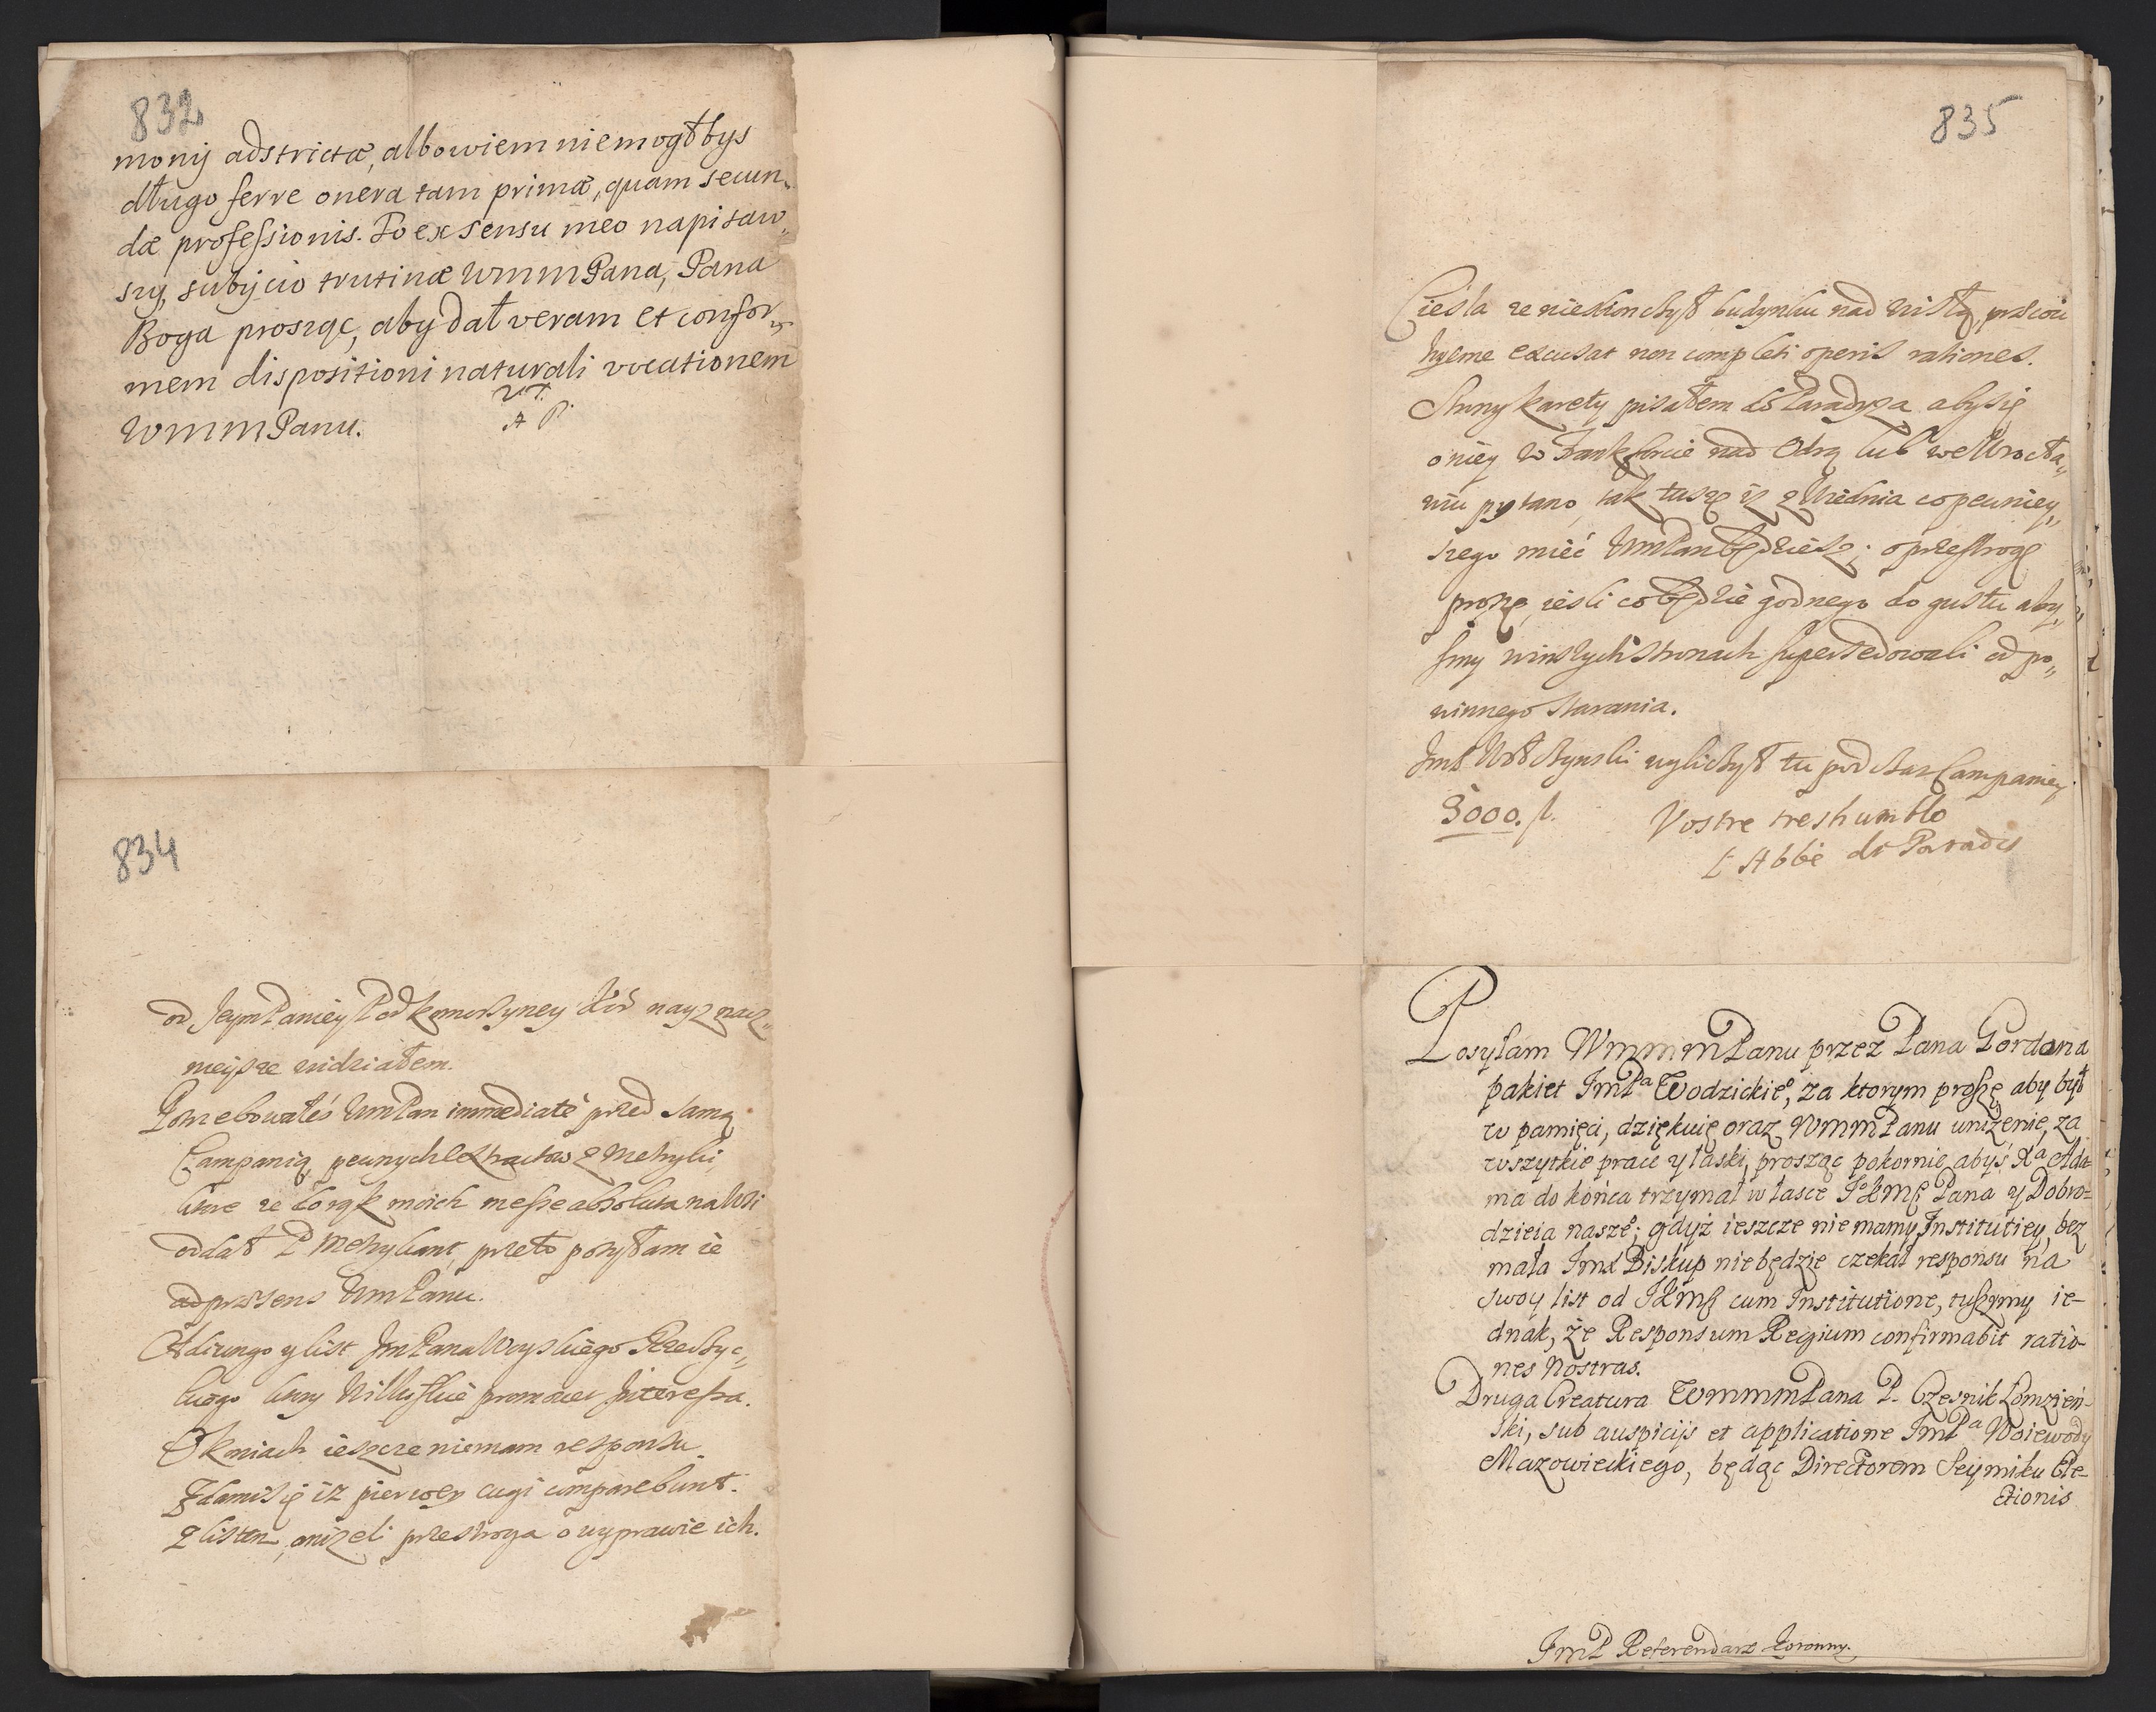 832
monij adstrictæ, albowiem niemogłbys
długo ferre onera tam primæ, quam secun„
dæ professionis. To ex sensu meo napisaw„
szy, subijcio trutinæ WmmPana, Pana
Boga prosząc, aby dał veram et confor„
mem dispositioni naturali vocationem
WmmPanu.
A P.
834
od JeymPaniey Podkomorzyney
mieysze widziałem.
Potrzebowałeś WmPan immediatè przed samą
Campanią, pewnych extractow z Metryki,
ktore że do rąk moich
oddał P Metrykant, przeto posyłam ie
ad præsens WmPanu.
Adiungo y list JmPana Woyskiego
ktory promovet Interessa.
O koniach ieszcze niemam responsu
Zdamisię iż pierwey cugi comparebunt
z listem, aniżeli przestroga o wyprawie ich.
835
Cieśla że niedkonczył budynku nad Wisłą,
hyeme excusat non completi operis rationes.
Strony karety pisałem do Paradyza aby się
o niey w Frankforcie nad Odrą lub we Wrocła„
wiu pytano, tak tuszę iż z Wiednia co pewniey„
szego mieć WmPan będziesz; o przestrogę
proszę, iesli co będzie godnego do gustu aby„
smy w inszych stronach supersedowali od po„
winnego starania.
Jmć wyliczył tu pod czas Campaniey
3000. fl. Vostre treshumble
L'Abbé de Paradis
Posyłam WmmmPanu przez Pana Gordona
pakiet JmPa Wodzickie°, za ktorym proszę aby był
w pamięci, dziękuię oraz WmmPanu uniżenie, za
wszytkie prace y łaski, prosząc pokornie abyś Xa Ada-
ma do końca trzymał w łasce JKMści Pana y Dobro-
dzieia nasze°; gdyż ieszcze nie mamy Institutiey, bez
mała Jmx Biskup niebędzie czekał responsu na
swoy list od JKMści cum Institutione, tuszymy ie-
dnak, że Responsum Regium confirmabit ratio-
nes Nostras.
Druga Creatura WmmmPana P. Czesnik Łomżeń-
ski, sub auspicijs et applicatione JmPa Woiewody
Mazowieckiego, będąc Directorem Seymiku Ele-
ctionis
JmP Referendarz Koronny.